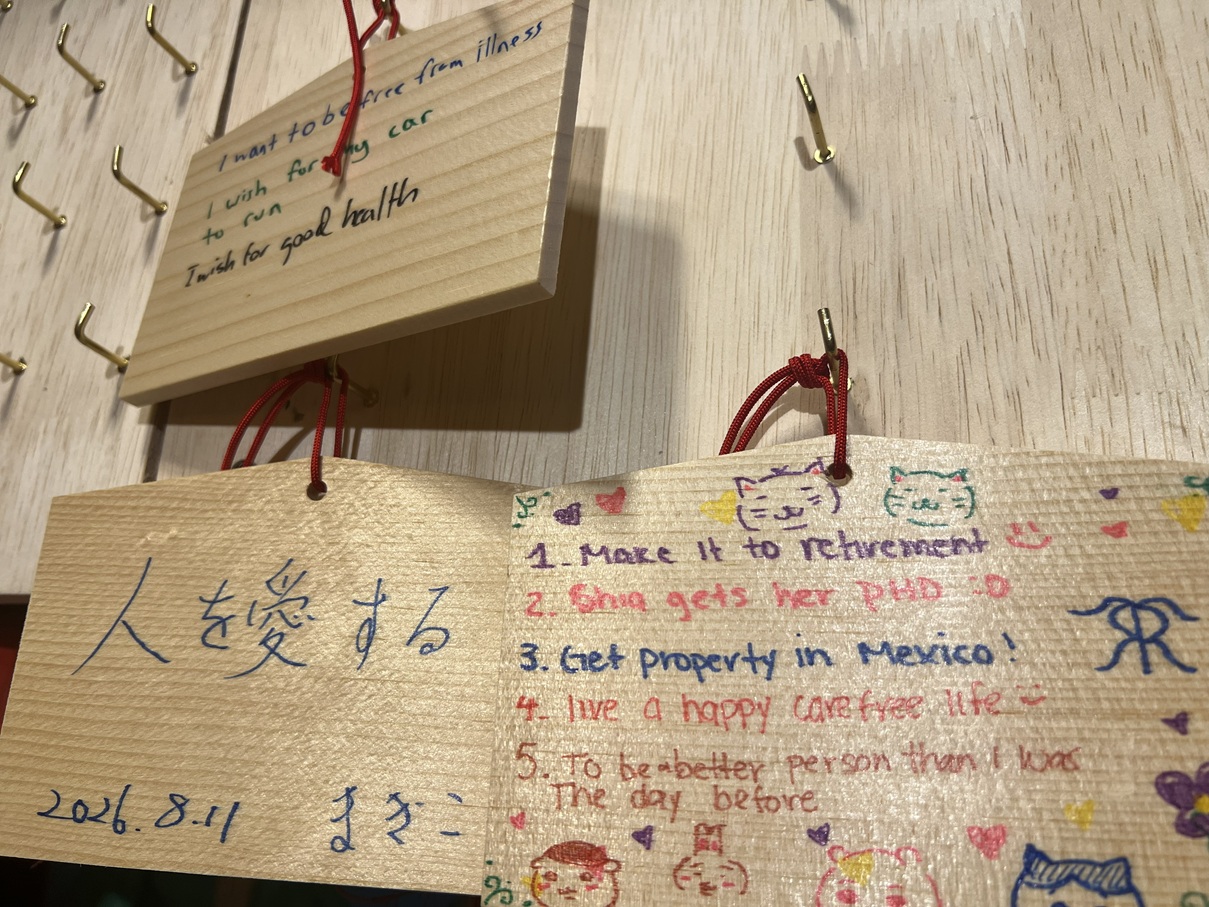 I want to be free from illness
I wish for my car
to run
I wish for good health
人を愛する
2026.8.11 まきこ
1. Make it to retirement
2. Shia gets her PHD :D
3. Get property in Mexico!
4. live a happy carefree life
5. To be a better person than I was
The day before